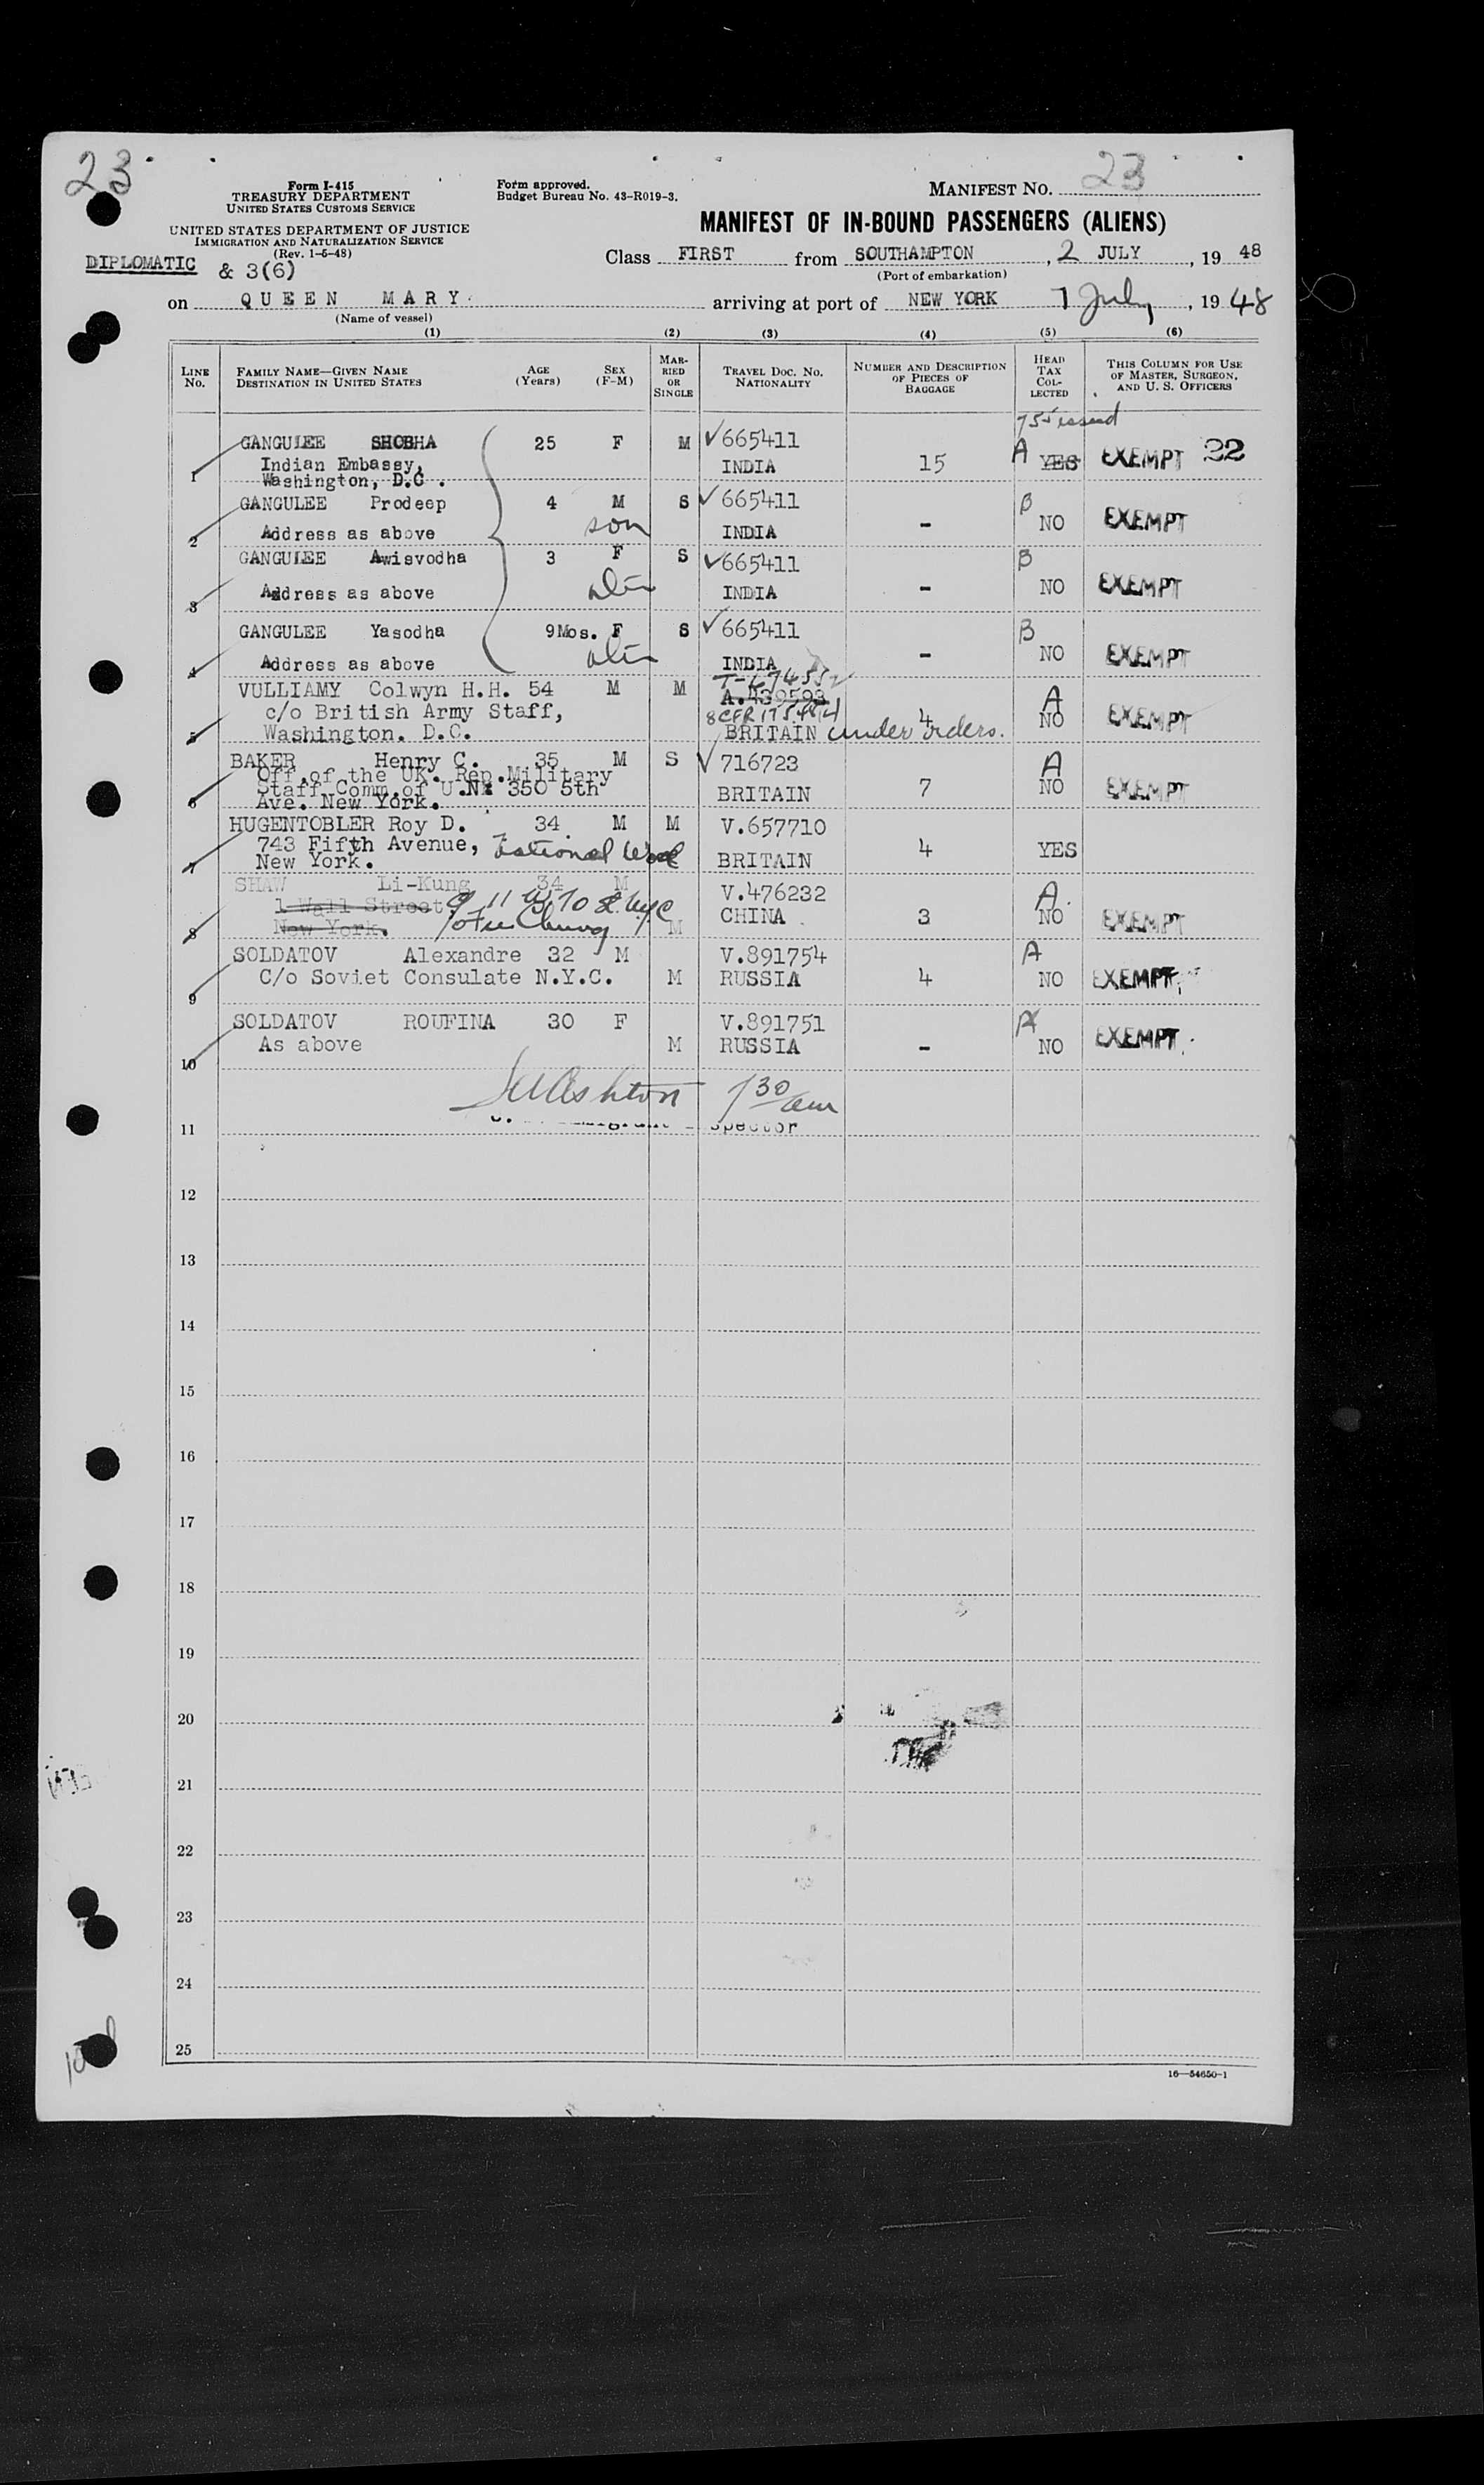 23
23
Form I-415
TREASURY DEPARTMENT
UNITED STATES CUSTOMS SERVICE
UNITED STATES DEPARTMENT OF JUSTICE
IMMIGRATION AND NATURALIZATION SERVICE
(Rev. 1-5-48)
Form approved.
Budget Bureau No. 43-R019-3.
MANIFEST NO.
MANIFEST OF IN-BOUND PASSENGERS (ALIENS)
DIPLOMATIC & 3(6)
Class FIRST from SOUTHAMPTON, 2 JULY, 19 48
(Port of embarkation)
on QUEEN MARY arriving at port of NEW YORK 7 July, 19 48
(Name of vessel)
(1) (2) (3) (4) (5) (6)
LINE No.
FAMILY NAME—GIVEN NAME
DESTINATION IN UNITED STATES
AGE (Years)
SEX (F-M)
MARRIED OR SINGLE
TRAVEL DOC. NO. NATIONALITY
NUMBER AND DESCRIPTION OF PIECES OF BAGGAGE
HEAD TAX COLLECTED
THIS COLUMN FOR USE OF MASTER, SURGEON, AND U. S. OFFICERS
GANGULEE SHOBHA 25 F M ✓665411 A YES EXEMPT 22
Indian Embassy, INDIA 15
1 Washington, D.C.
GANGULEE Prodeep 4 M S ✓665411 B
son NO EXEMPT
2 Address as above INDIA -
GANGULEE Awisvodha 3 F S ✓665411 B
3 Address as above INDIA - NO EXEMPT
GANGULEE Yasodha 9Mos. F S ✓665411 B
4 Address as above INDIA - NO EXEMPT
VULLIAMY Colwyn H.H. 54 M M A.439593 A
c/o British Army Staff, 4 NO EXEMPT
5 Washington. D.C. BRITAIN under orders.
BAKER Henry C. 35 M S ✓716723 A
Off.of the UK. Rep.Military NO
Staff Comm.of U.N. 350 5th BRITAIN 7 EXEMPT
6 Ave. New York.
HUGENTOBLER Roy D. 34 M M V.657710
743 Fifth Avenue, 4 YES
7 New York. BRITAIN
SHAW Li-Kung 34 M V.476232 A.
1 Wall Street 11 W. 70 St. NYC CHINA 3 NO EXEMPT
8 New York. M
SOLDATOV Alexandre 32 M V.891754 A
C/o Soviet Consulate N.Y.C. M RUSSIA 4 NO EXEMPT
9
SOLDATOV ROUFINA 30 F V.891751 A
As above M RUSSIA - NO EXEMPT
10
Ashton 7 30 am
11
12
13
14
15
16
17
18
19
20
21
22
23
24
25
16—54650-1